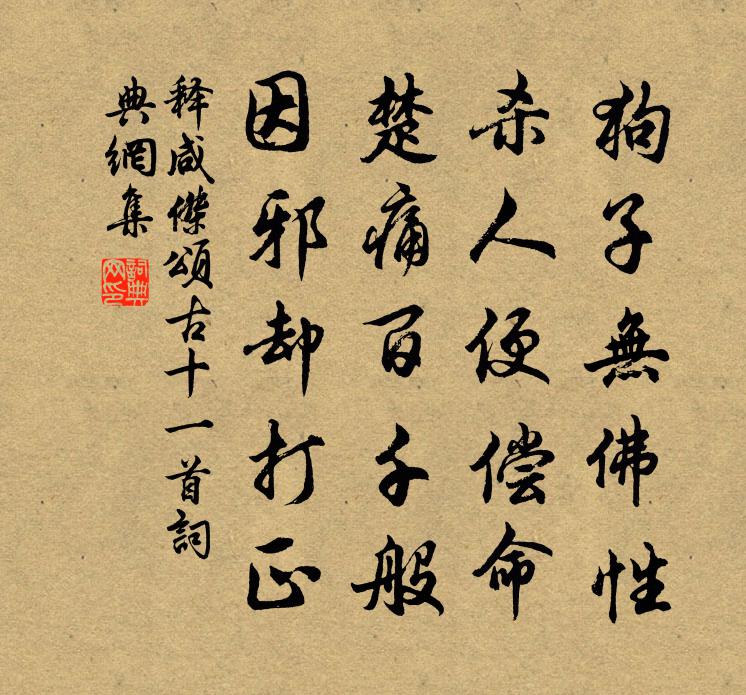 狗子無佛性
杀人便偿命
楚痛百千般
因邪却打正
释咸傑頌古十一首詞
典網集
詞典网印